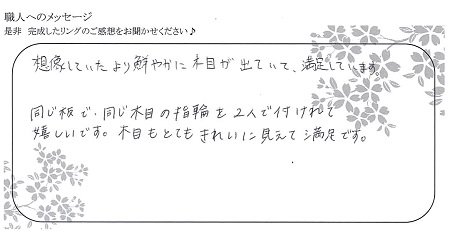 職人へのメッセージ
是非 完成したリングのご感想をお聞かせください♪
想像していたより鮮やかに木目が出ていて、満足しています。
同じ板で、同じ木目の指輪を2人で付けれて
嬉しいです。木目もとてもきれいに見えて満足です。